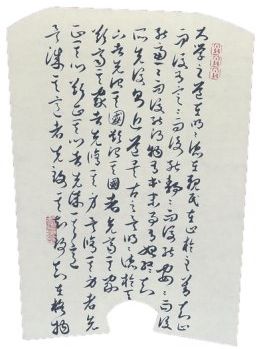 大学之道在明明德在親民在止於至善知止
而後有定定而後能静静而後能安安而後
能慮慮而後能得物有本末事有終始知
所先後則近道矣古之欲明明德於天
下者先治其國欲治其國者先齊其家
欲齊其家者先修其身欲修其身者先
正其心欲正其心者先誠其意
欲誠其意者先致其知致知在格物